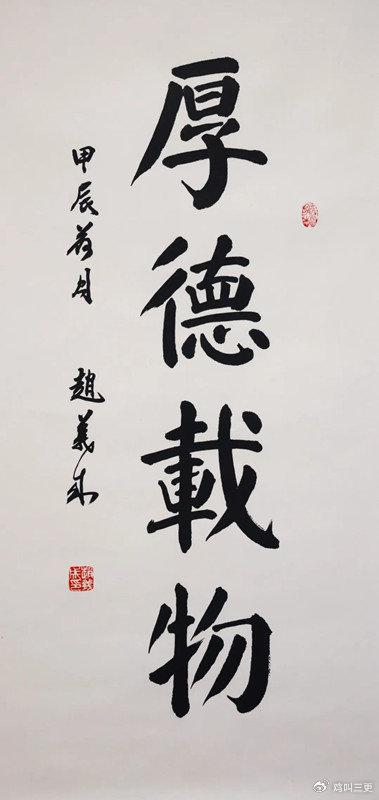 厚德載物
甲辰月 趙義
鸡叫三更